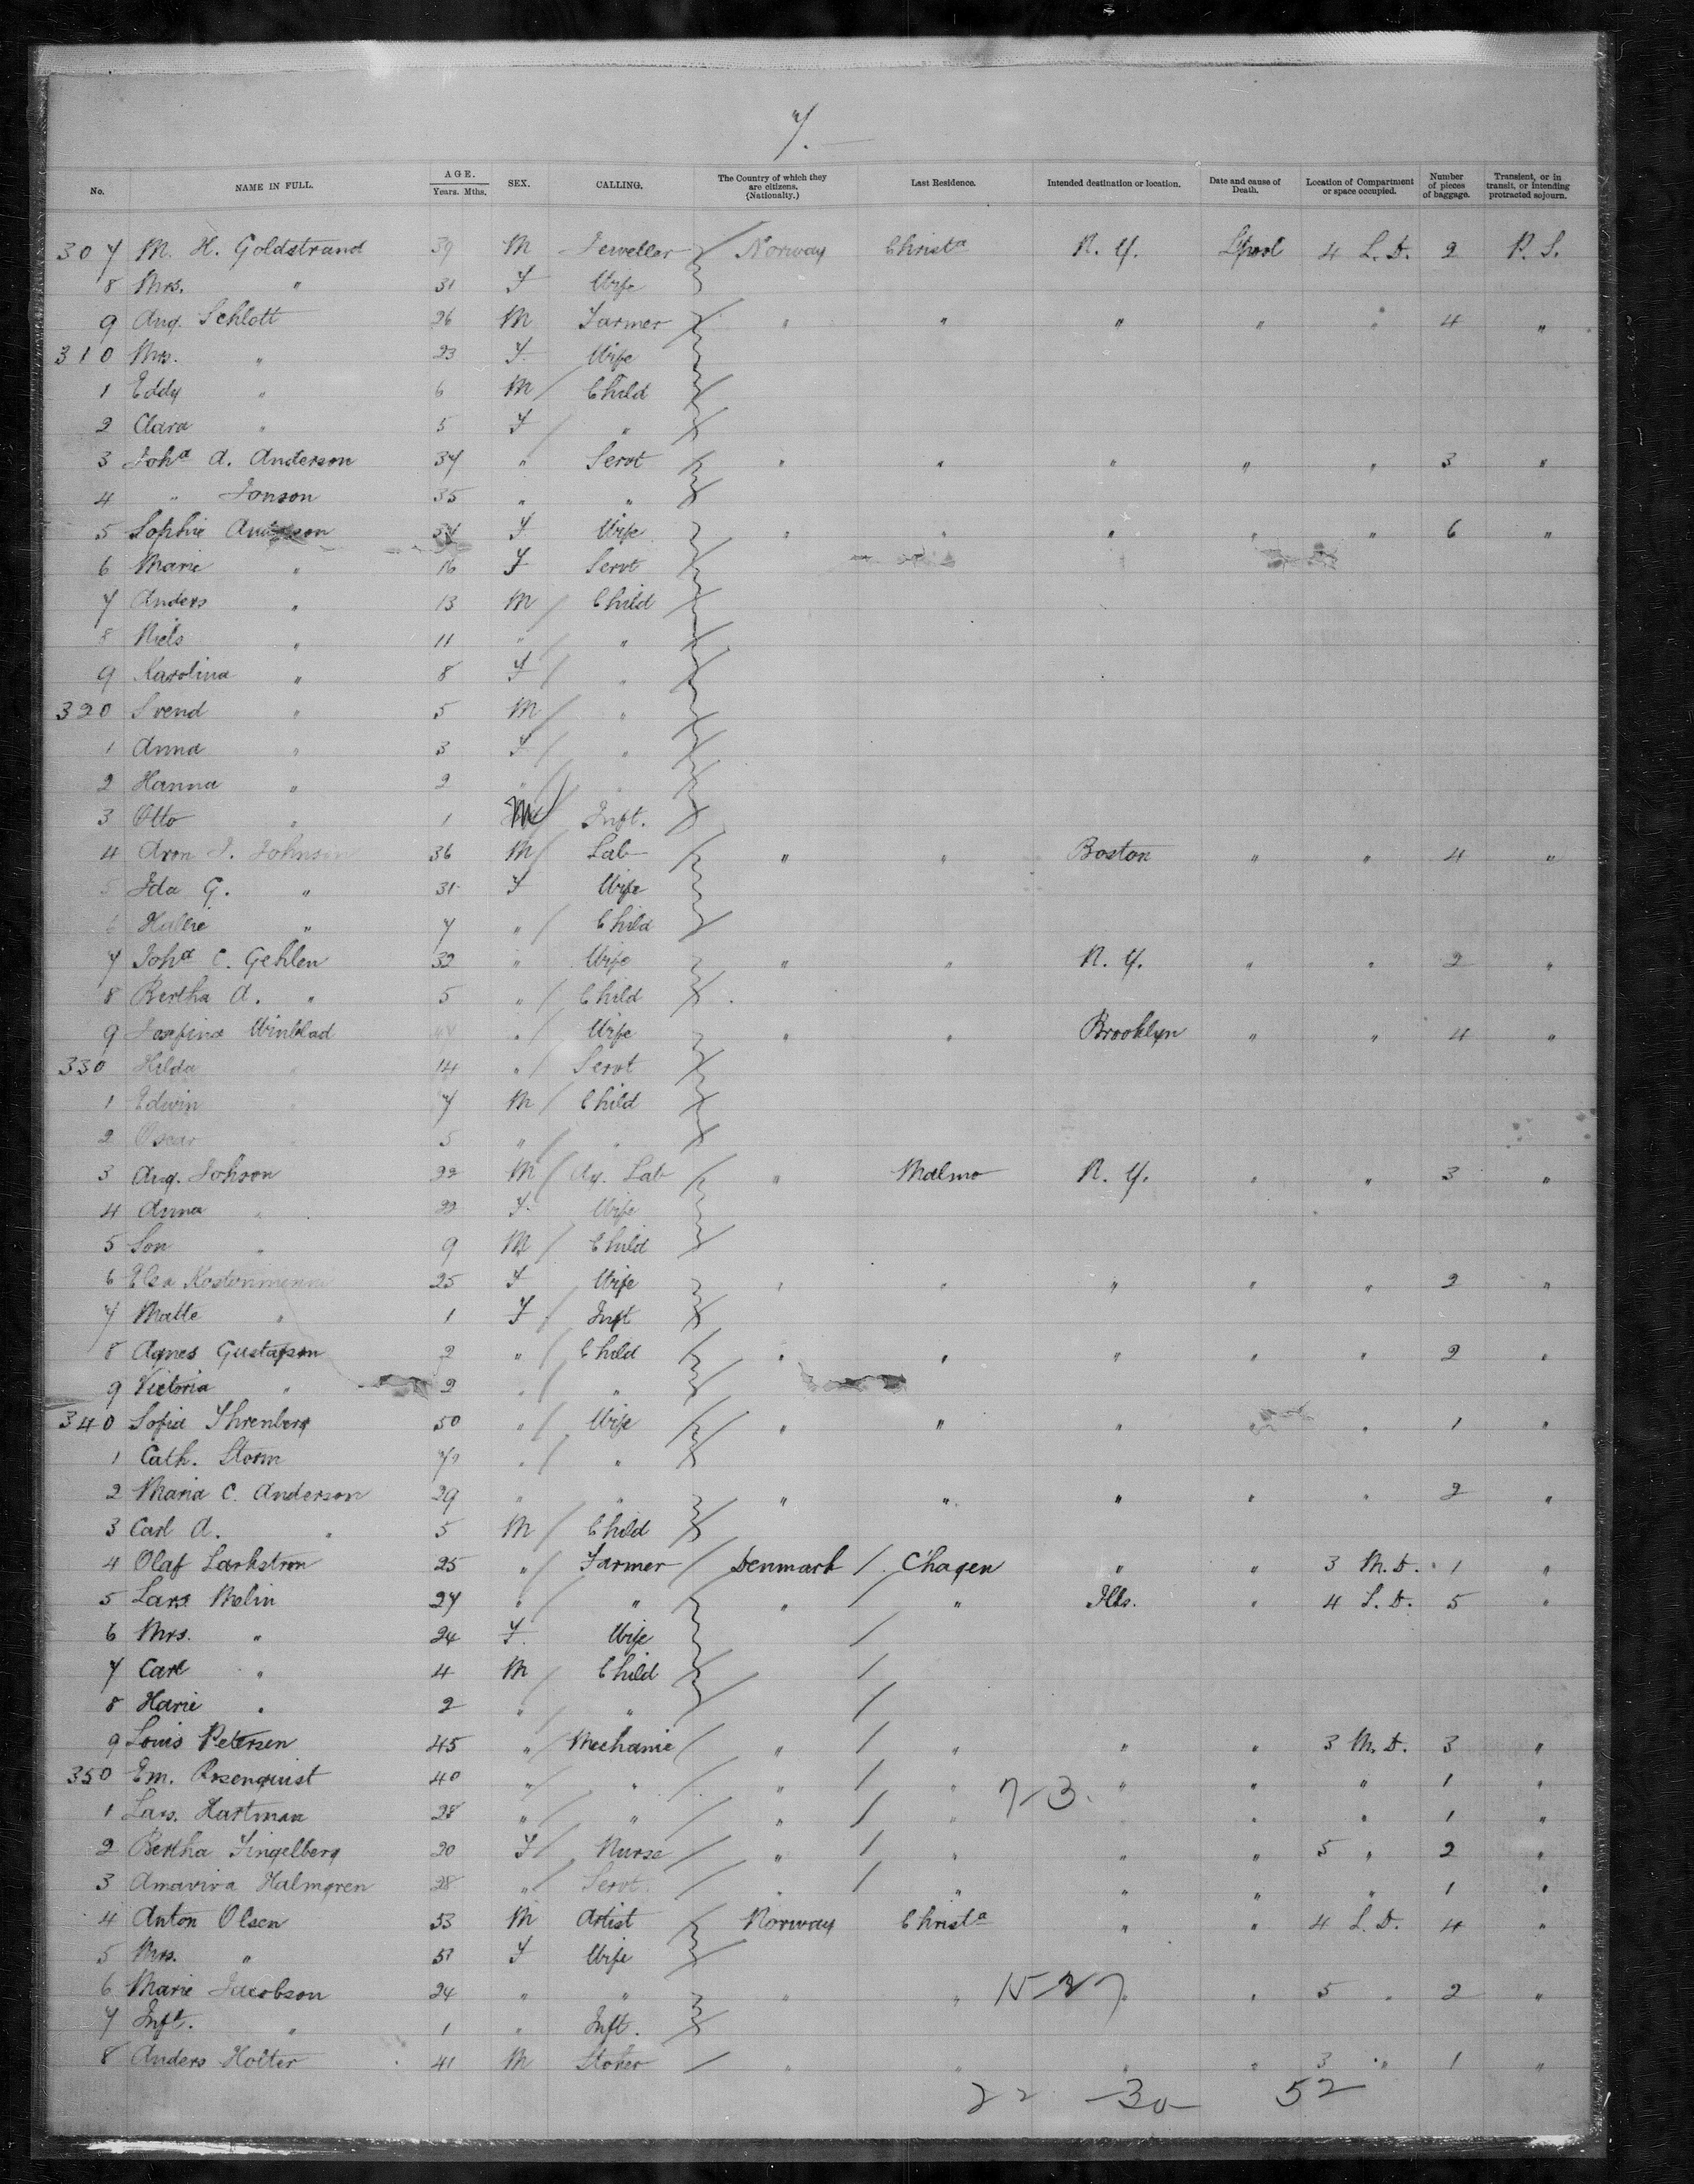 7.
No. NAME IN FULL. AGE. Years. Mths. SEX. CALLING. The Country of which they are citizens. (Nationalty.) Last Residence. Intended destination or location. Date and cause of Death. Location of Compartment or space occupied. Number of pieces of baggage. Transient, or in transit, or intending protracted sojourn.
307 M. H. Goldstrand 39 M Jeweller Norway Christa N. Y. Lpool 4 L. D. 2 P. S.
8 Mrs. " 31 F Wife
9 Aug. Schlott 26 M Farmer " " " " " 4 "
310 Mrs. " 23 F. Wife
1 Eddy " 6 M Child
2 Clara " 5 F "
3 Joha A. Anderson 37 " Servt " " " " " 3 "
4 " Jonson 35 " "
5 Sophie Anderson F Wife " " " " " 6 "
6 Marie " 16 F Servt
7 Anders " 13 M Child
8 Niels " 11 " "
9 Karolina " 8 F "
320 Svend " 5 M "
1 Anna " 3 F "
2 Hanna " 2 " "
3 Otto " 1 M Inft.
4 Aron J. Johnson 36 M Lab " " Boston " " 4 "
5 Ida G. " 31 F Wife
6 " 7 " Child
7 Joha C. Gehlen 32 " Wife " " N. Y. " " 2 "
8 Bertha A. " 5 " Child
9 Josefina Winblad " Wife " " Brooklyn " " 4 "
330 Hilda " 14 " Servt
1 Edwin " 7 M Child
2 Oscar " 5 " "
3 Aug. Johson 22 M Ag. Lab " Malmo N. Y. " " 3 "
4 Anna " 22 F. Wife
5 Son " 9 M Child
6 Elsa 25 F Wife " " " " " 2 "
7 Matte " 1 F Inft
8 Agnes Gustafson 2 " Child " " " " " 2 "
9 Victoria " 2 " "
340 Sofia Threnberg 50 " Wife " " " " " 1 "
1 Cath. Storm " "
2 Maria C. Anderson 29 " " " " " " " 2 "
3 Carl A. " 5 M Child
4 Olaf Larkstrom 25 " Farmer Denmark C'hagen " " 3 M. D. 1 "
5 Lars Melin 27 " " " " Ills. " 4 L. D. 5 "
6 Mrs. " 24 F. Wife
7 Carl " 4 M Child
8 Harie " 2 " "
9 Louis Petersen 45 " Mechanic " " " " 3 M. D. 3 "
350 Em. Rosenquist 40 " " " " " " " 1 "
7-3.
1 Lars. Hartman 28 " " " " " " 1 "
2 Bertha Fingelberg 20 F Nurse " " " " 5 " 2 "
3 Amavira Halmgren 28 " Servt. " " " " " 1 "
4 Anton Olsen 53 M Artist Norway Christa " " 4 L. D. 4 "
5 Mrs. " 51 F Wife
6 Marie Jacobson 24 " " " " " " 5 " 2 "
15-27
7 Inft. " 1 " Inft.
8 Anders Holter 41 M Stoker " " " " 3 " 1 "
22 -30- 52